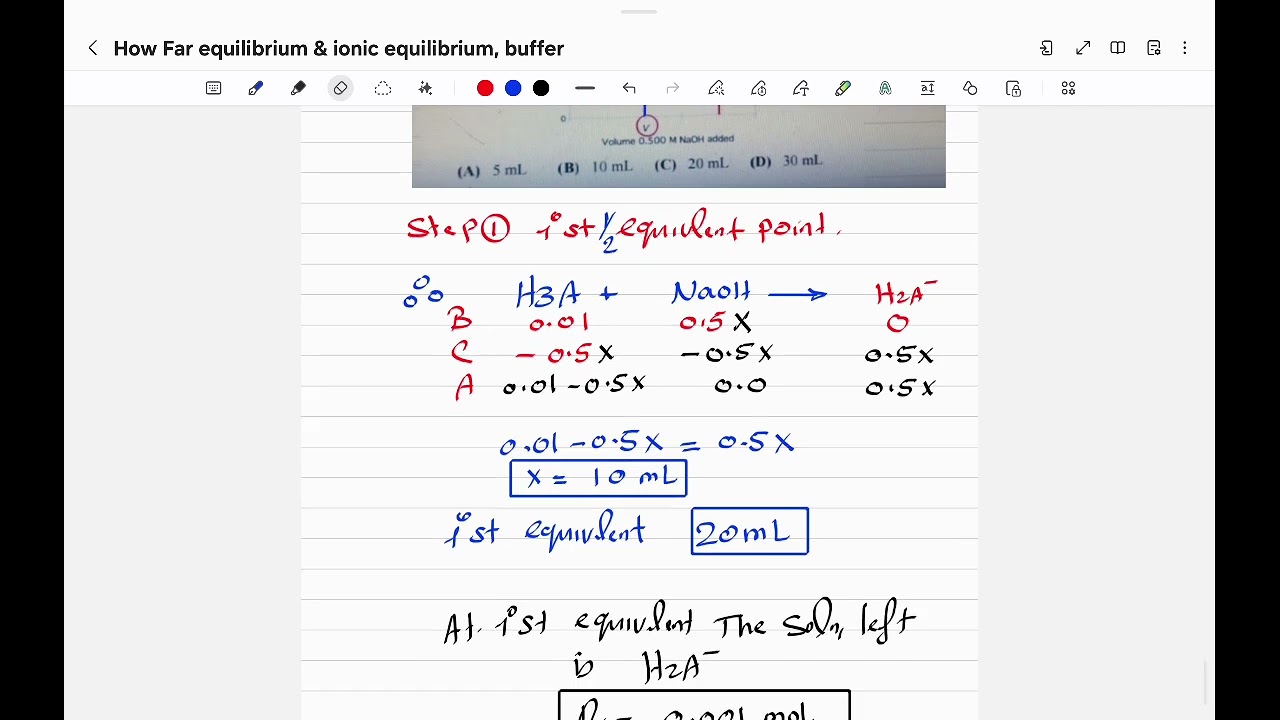 How Far equilibrium & ionic equilibrium, buffer
0
V
Volume 0.500 M NaOH added
(A) 5 mL (B) 10 mL (C) 20 mL (D) 30 mL
Step ① 1st 1/2 equivlent point.
H3A + NaOH → H2A⁻
B 0.01 0.5X 0
C - 0.5X -0.5X 0.5X
A 0.01-0.5X 0.0 0.5X
0.01-0.5X = 0.5X
X = 10 mL
1st equivlent 20mL
At 1st equivlent The Soln left
is H2A⁻
0.001 mol